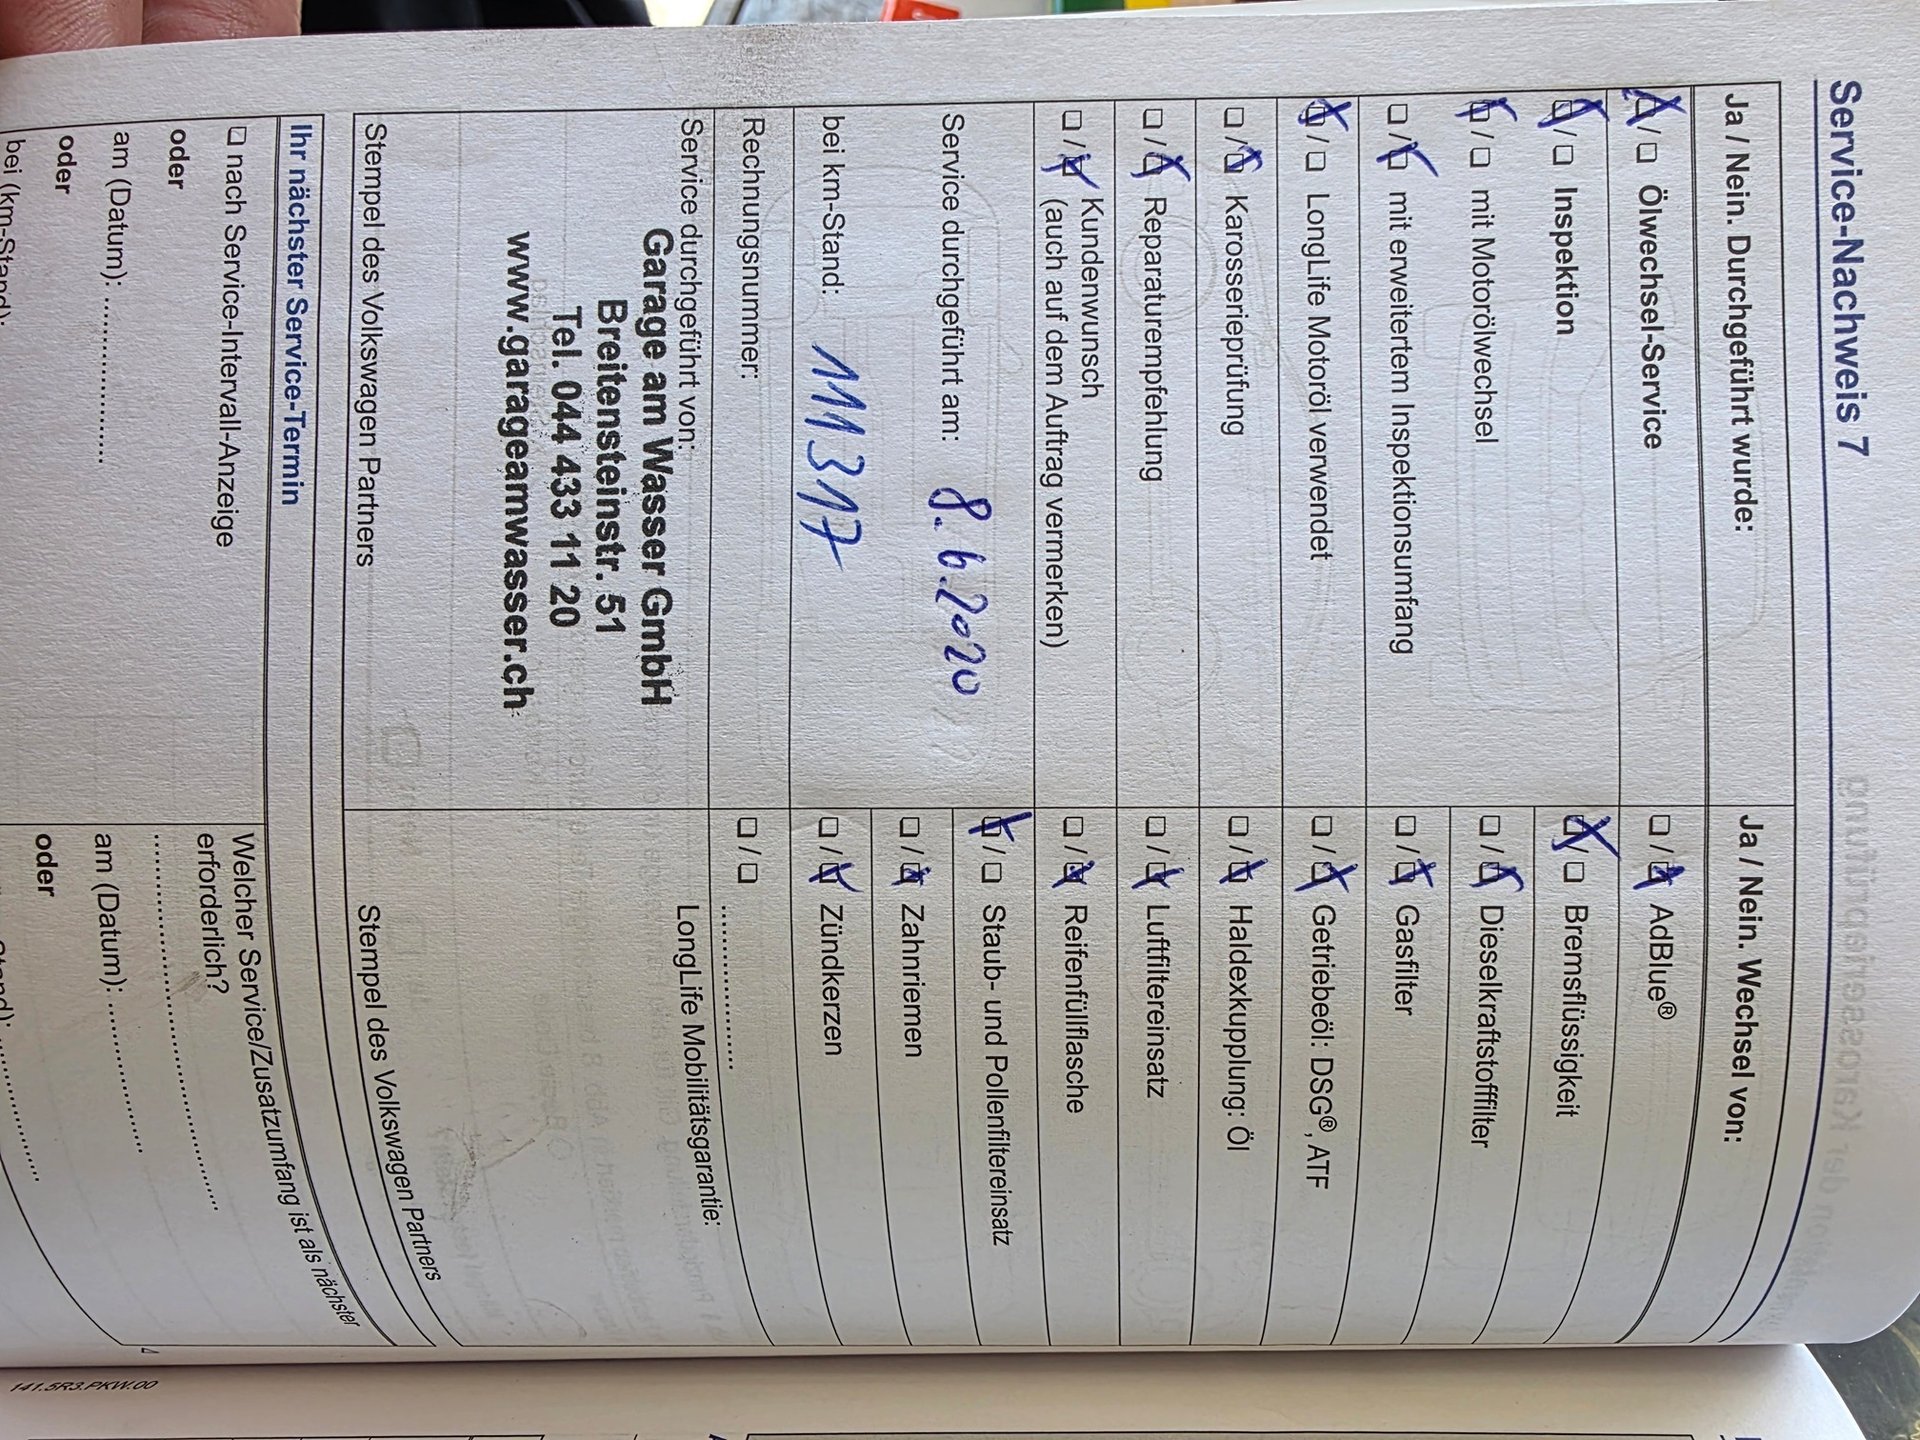 Service-Nachweis 7
Ja / Nein. Durchgeführt wurde:
☒ / ☐ Ölwechsel-Service
☒ / ☐ Inspektion
☒ / ☐ mit Motorölwechsel
☐ / ☒ mit erweitertem Inspektionsumfang
☒ / ☐ LongLife Motoröl verwendet
☐ / ☒ Karosserieprüfung
☐ / ☒ Reparaturempfehlung
☐ / ☒ Kundenwunsch
(auch auf dem Auftrag vermerken)
Service durchgeführt am: 8.6.2020
bei km-Stand: 111317
Rechnungsnummer:
Service durchgeführt von:
Garage am Wasser GmbH
Breitensteinstr. 51
Tel. 044 433 11 20
www.garageamwasser.ch
Stempel des Volkswagen Partners
Ja / Nein. Wechsel von:
☐ / ☒ AdBlue®
☒ / ☐ Bremsflüssigkeit
☐ / ☒ Dieselkraftstofffilter
☐ / ☒ Gasfilter
☐ / ☒ Getriebeöl: DSG®, ATF
☐ / ☒ Haldexkupplung: Öl
☐ / ☒ Luftfiltereinsatz
☐ / ☒ Reifenfüllflasche
☒ / ☐ Staub- und Pollenfiltereinsatz
☐ / ☒ Zahnriemen
☐ / ☒ Zündkerzen
☐ / ☐ ....................
LongLife Mobilitätsgarantie:
Stempel des Volkswagen Partners
Ihr nächster Service-Termin
☐ nach Service-Intervall-Anzeige
oder
am (Datum): ....................
oder
bei (km-Stand):
Welcher Service/Zusatzumfang ist als nächster
erforderlich?
....................
am (Datum): ....................
oder
141.5R3.PKW.00